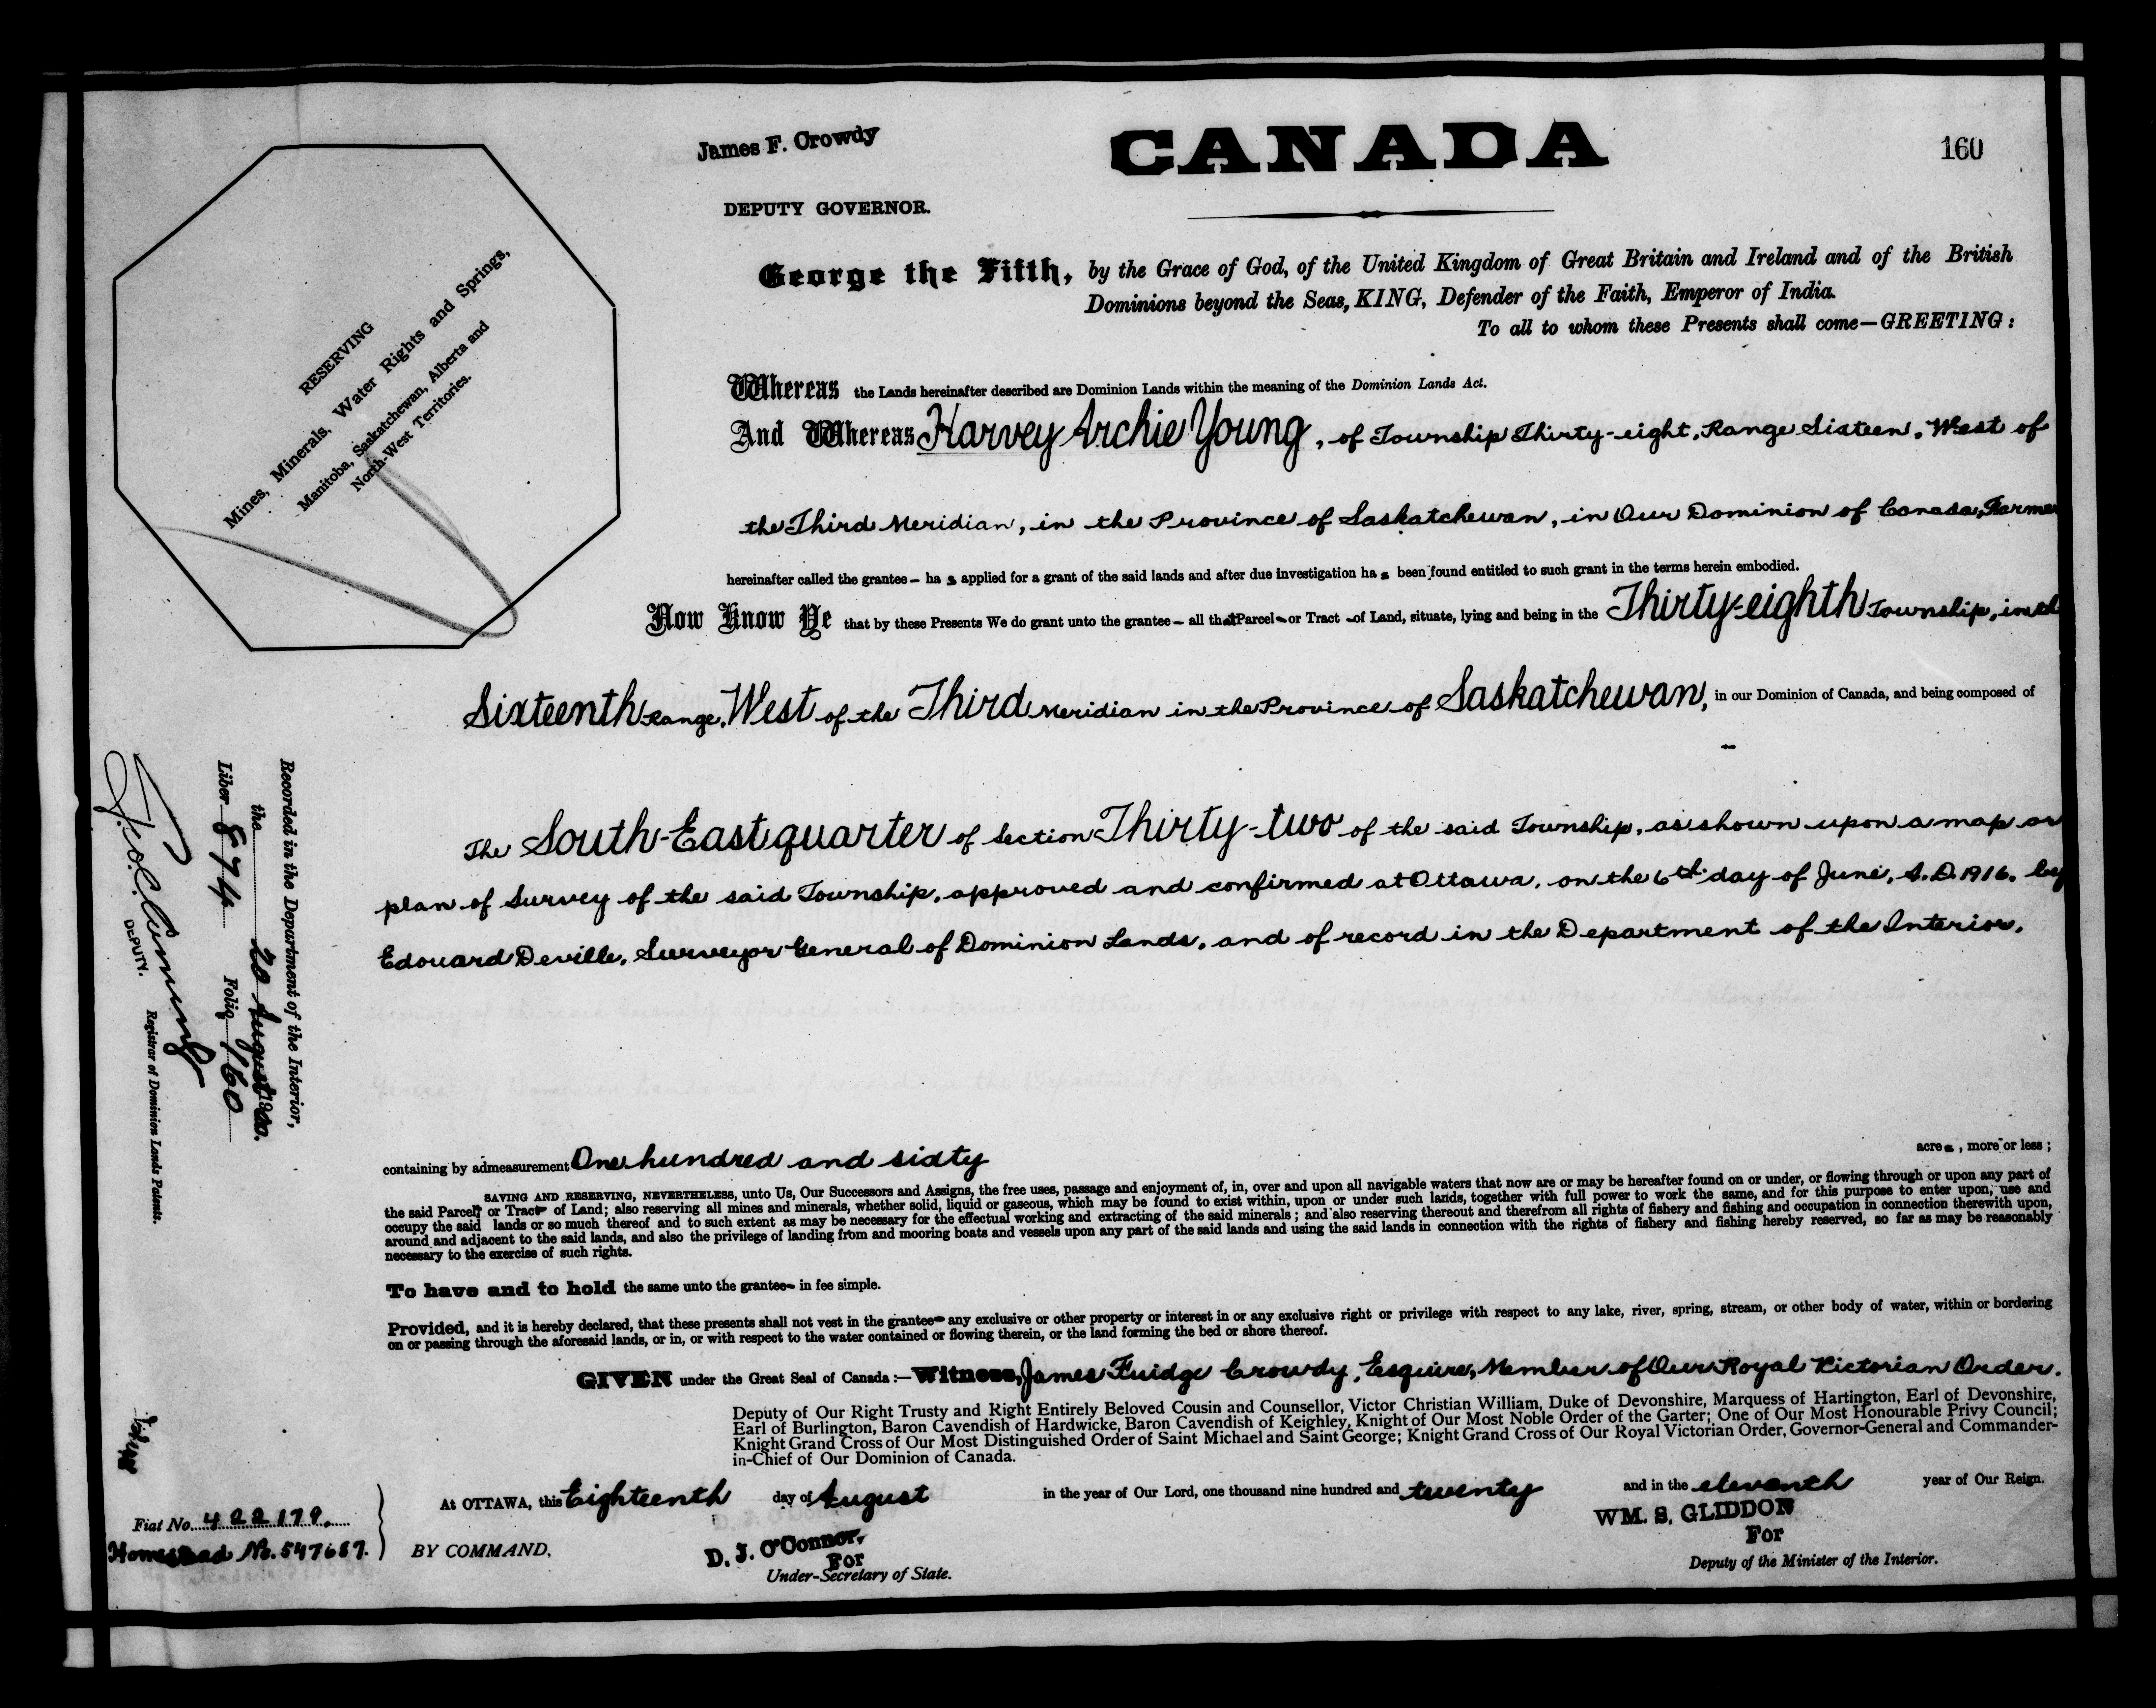 James F. Crowdy
DEPUTY GOVERNOR.
CANADA
160
RESERVING
Mines, Minerals, Water Rights and Springs,
Manitoba, Saskatchewan, Alberta and
North-West Territories.
George the Fifth, by the Grace of God, of the United Kingdom of Great Britain and Ireland and of the British
Dominions beyond the Seas, KING, Defender of the Faith, Emperor of India.
To all to whom these Presents shall come—GREETING:
Whereas the Lands hereinafter described are Dominion Lands within the meaning of the Dominion Lands Act.
And Whereas Harvey Archie Young, of Township Thirty-eight, Range Sixteen, West of
the Third Meridian, in the Province of Saskatchewan, in Our Dominion of Canada, Farmer
hereinafter called the grantee— ha s applied for a grant of the said lands and after due investigation ha s been found entitled to such grant in the terms herein embodied.
Now Know Ye that by these Presents We do grant unto the grantee— all that Parcel— or Tract —of Land, situate, lying and being in the Thirty-eighth Township, in th
Sixteenth Range, West of the Third Meridian in the Province of Saskatchewan, in our Dominion of Canada, and being composed of
The South-East quarter of Section Thirty-two of the said Township, as shown upon a map or
plan of Survey of the said Township, approved and confirmed at Ottawa, on the 6th day of June, A.D. 1916, by
Edouard Deville, Surveyor General of Dominion Lands, and of record in the Department of the Interior.
containing by admeasurement One hundred and sixty acres, more or less;
SAVING AND RESERVING, NEVERTHELESS, unto Us, Our Successors and Assigns, the free uses, passage and enjoyment of, in, over and upon all navigable waters that now are or may be hereafter found on or under, or flowing through or upon any part of
the said Parcel or Tract of Land; also reserving all mines and minerals, whether solid, liquid or gaseous, which may be found to exist within, upon or under such lands, together with full power to work the same, and for this purpose to enter upon, use and
occupy the said lands or so much thereof and to such extent as may be necessary for the effectual working and extracting of the said minerals; and also reserving thereout and therefrom all rights of fishery and fishing and occupation in connection therewith upon,
around and adjacent to the said lands, and also the privilege of landing from and mooring boats and vessels upon any part of the said lands and using the said lands in connection with the rights of fishery and fishing hereby reserved, so far as may be reasonably
necessary to the exercise of such rights.
To have and to hold the same unto the grantee— in fee simple.
Provided, and it is hereby declared, that these presents shall not vest in the grantee— any exclusive or other property or interest in or any exclusive right or privilege with respect to any lake, river, spring, stream, or other body of water, within or bordering
on or passing through the aforesaid lands, or in, or with respect to the water contained or flowing therein, or the land forming the bed or shore thereof.
GIVEN under the Great Seal of Canada:—Witness, James Fuidge Crowdy, Esquire, Member of Our Royal Victorian Order.
Deputy of Our Right Trusty and Right Entirely Beloved Cousin and Counsellor, Victor Christian William, Duke of Devonshire, Marquess of Hartington, Earl of Devonshire,
Earl of Burlington, Baron Cavendish of Hardwicke, Baron Cavendish of Keighley, Knight of Our Most Noble Order of the Garter; One of Our Most Honourable Privy Council;
Knight Grand Cross of Our Most Distinguished Order of Saint Michael and Saint George; Knight Grand Cross of Our Royal Victorian Order, Governor-General and Commander-
in-Chief of Our Dominion of Canada.
At OTTAWA, this Eighteenth day of August in the year of Our Lord, one thousand nine hundred and twenty and in the eleventh year of Our Reign.
BY COMMAND,
D. J. O'Connor,
For
Under-Secretary of State.
WM. S. GLIDDON
For
Deputy of the Minister of the Interior.
Recorded in the Department of the Interior,
the 20 August 1920.
Liber 874 Folio 160
DEPUTY. Registrar of Dominion Lands Patents.
Fiat No. 422179.
Homestead No. 547687.